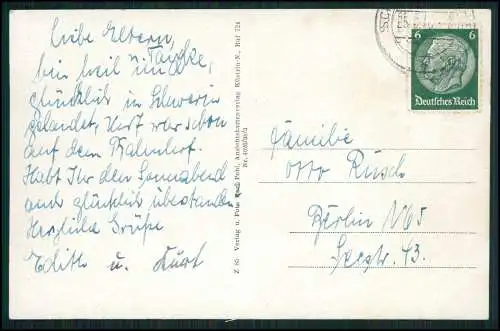 Liebe Eltern,
u. Tantke,
bin heil und
glücklich in Schwerin
gelandet, Kurt war schon
auf dem Bahnhof.
Habt Ihr den Sonnabend
auch glücklich überstanden
Herzliche Grüße
Edith u. Kurt
Z 86 Verlag u. Foto Rudi Pohl, Ansichtskartenverlag Küstrin N., Ruf 724
6 6
Deutsches Reich
Familie
Otto Rusch
Berlin N65
Seestr. 43.